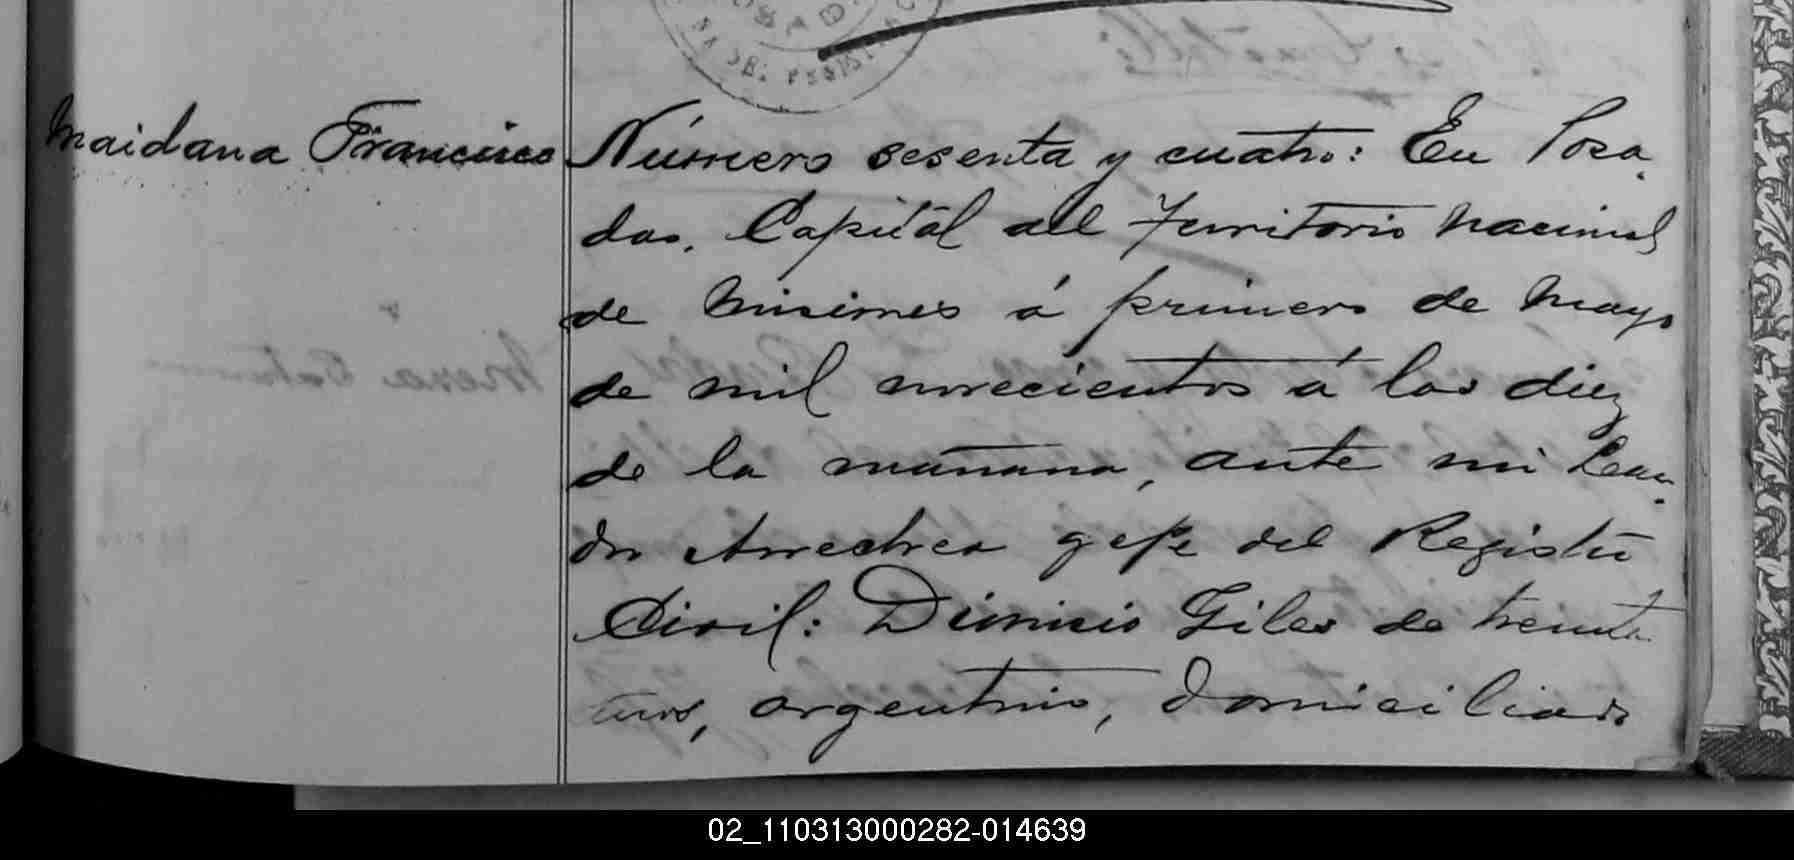 Maidana Francisco
Número sesenta y cuatro: En Posa-
das, Capital del Territorio Nacional
de Misiones á primero de Mayo
de mil novecientos á las diez
de la mañana, ante mi Lean-
dro Arrechea gefe del Registro
Civil: Dionicio Giles de treinta
años, argentino, domiciliado
02_110313000282-014639